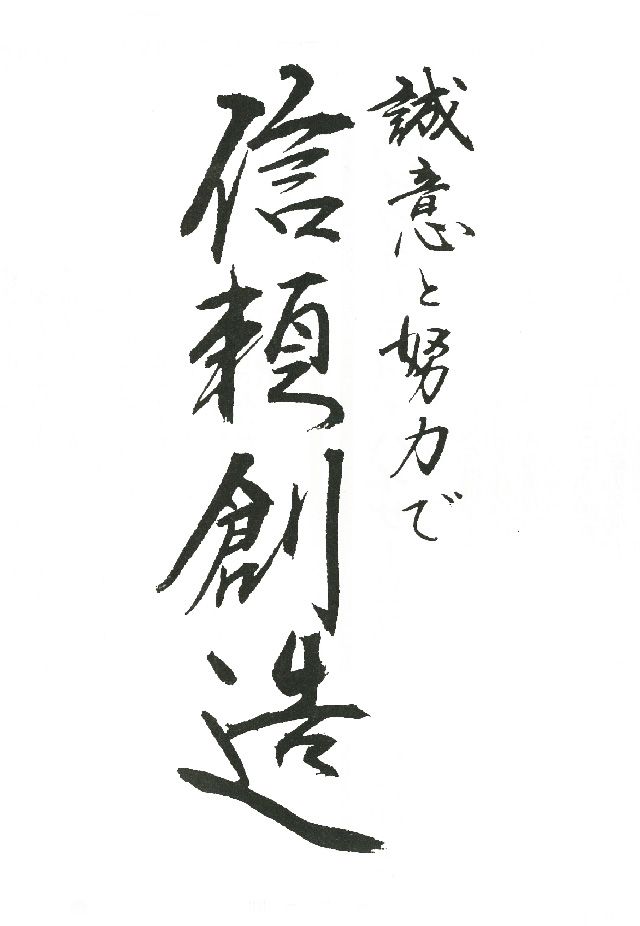 誠意と努力で
信頼創造